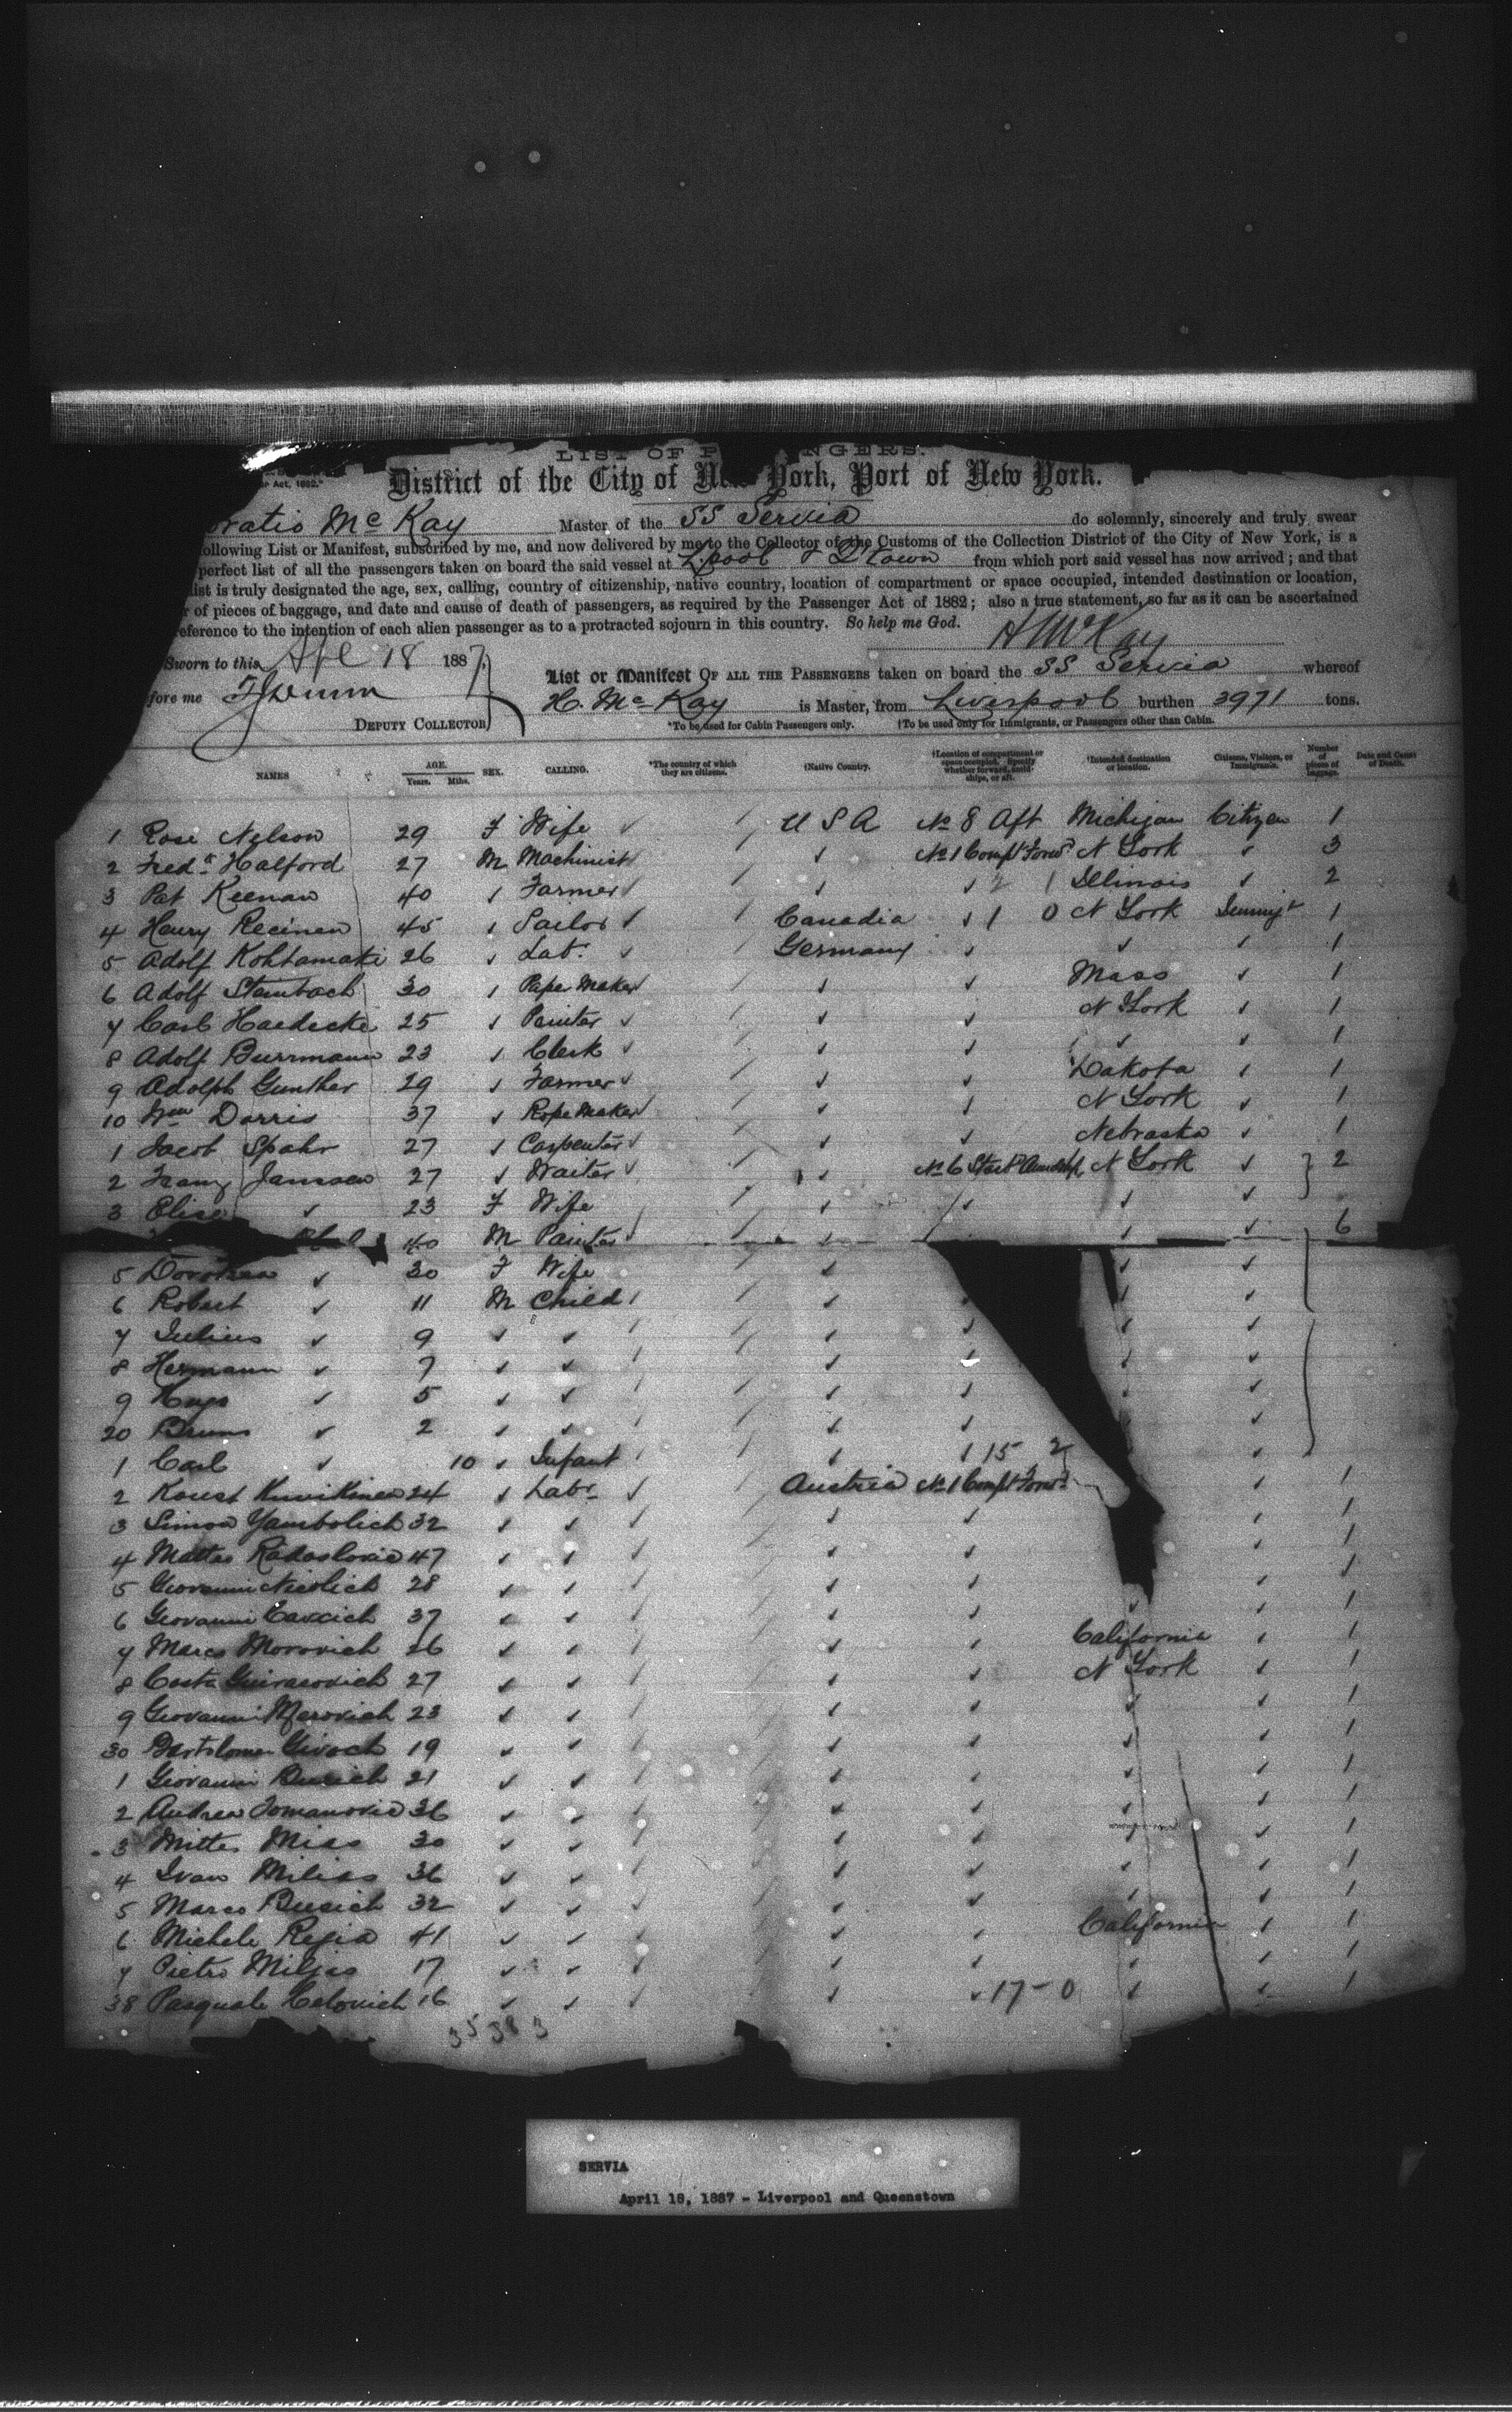 LIST OF P NGERS.
r Act, 1882."
District of the City of New York, Port of New York.
oratio Mc Kay Master of the SS Servia do solemnly, sincerely and truly swear
ollowing List or Manifest, subscribed by me, and now delivered by me to the Collector of the Customs of the Collection District of the City of New York, is a
perfect list of all the passengers taken on board the said vessel at L'pool & Q'town from which port said vessel has now arrived; and that
list is truly designated the age, sex, calling, country of citizenship, native country, location of compartment or space occupied, intended destination or location,
r of pieces of baggage, and date and cause of death of passengers, as required by the Passenger Act of 1882; also a true statement, so far as it can be ascertained
reference to the intention of each alien passenger as to a protracted sojourn in this country. So help me God.
H McKay
Sworn to this Apl 18 1887
List or Manifest OF ALL THE PASSENGERS taken on board the SS Servia whereof
fore me
H. Mc Kay is Master, from Liverpool burthen 3971 tons.
DEPUTY COLLECTOR
*To be used for Cabin Passengers only. †To be used only for Immigrants, or Passengers other than Cabin.
NAMES AGE. Years. Mths. SEX. CALLING. *The country of which they are citizens. †Native Country. †Location of compartment or space occupied. Specify whether forward, amidships, or aft. †Intended destination or location. Citizens, Visitors, or Immigrants. Number of pieces of luggage. Date and Cause of Death.
1 Rose Nelson 29 F Wife ✓ U S A No 8 Aft Michigan Citizen 1
2 Fredk Halford 27 M Machinist ✓ ✓ No 1 Compt Forwd N York ✓ 3
3 Pat Keenan 40 ✓ Farmer ✓ ✓ ✓ 2 1 Illinois ✓ 2
4 Henry Recinen 45 ✓ Sailor ✓ Canadia ✓ 1 0 N York Immigt 1
5 Adolf Kohtamaki 26 ✓ Labr ✓ Germany ✓ ✓ ✓ 1
6 Adolf Steinbach 30 ✓ Paper Maker ✓ ✓ ✓ Mass ✓ 1
7 Carl Haedecke 25 ✓ Painter ✓ ✓ ✓ N York ✓ 1
8 Adolf Burrmann 23 ✓ Clerk ✓ ✓ ✓ ✓ ✓ 1
9 Adolph Gunther 29 ✓ Farmer ✓ ✓ ✓ Dakota ✓ 1
10 Wm Dorris 37 ✓ Rope Maker ✓ ✓ ✓ N York ✓ 1
1 Jacob Spahr 27 ✓ Carpenter ✓ ✓ ✓ Nebraska ✓ 1
2 Franz Janssen 27 ✓ Waiter ✓ ✓ No 6 Starbd Amidship N York ✓ 2
3 Elise ✓ 23 F Wife ✓ ✓ ✓ ✓
40 M Painter ✓ ✓ ✓ ✓ 6
5 Dorothea ✓ 30 F Wife ✓ ✓ ✓
6 Robert ✓ 11 M Child ✓ ✓ ✓ ✓
7 Julius ✓ 9 ✓ ✓ ✓ ✓ ✓ ✓
8 Hermann ✓ 7 ✓ ✓ ✓ ✓ ✓ ✓
9 Hugo ✓ 5 ✓ ✓ ✓ ✓ ✓ ✓
20 Bruno ✓ 2 ✓ ✓ ✓ ✓ ✓ ✓
1 Carl ✓ 10 ✓ Infant ✓ ✓ 15 2 ✓
2 24 ✓ Labr ✓ Austria No 1 Compt Forwd ✓ 1
3 Simon Yambolich 32 ✓ ✓ ✓ ✓ ✓ ✓ 1
4 Matteo Radoslovic 47 ✓ ✓ ✓ ✓ ✓ ✓ 1
5 Giovanni Nicolich 28 ✓ ✓ ✓ ✓ ✓ ✓ 1
6 Giovanni 37 ✓ ✓ ✓ ✓ ✓ ✓ ✓ 1
7 Marco Morovich 26 ✓ ✓ ✓ ✓ ✓ California ✓ 1
8 Costa 27 ✓ ✓ ✓ ✓ ✓ N York ✓ 1
9 Giovanni Marovich 23 ✓ ✓ ✓ ✓ ✓ ✓ ✓ 1
30 Bartolomeo 19 ✓ ✓ ✓ ✓ ✓ ✓ ✓ 1
1 Giovanni Busich 21 ✓ ✓ ✓ ✓ ✓ ✓ ✓ 1
2 Andrea Tomanovic 36 ✓ ✓ ✓ ✓ ✓ ✓ ✓ 1
3 Mitte Mias 30 ✓ ✓ ✓ ✓ ✓ ✓ ✓ 1
4 Ivan Milias 36 ✓ ✓ ✓ ✓ ✓ ✓ ✓ 1
5 Marco Busich 32 ✓ ✓ ✓ ✓ ✓ ✓ ✓ 1
6 Michele Regia 41 ✓ ✓ ✓ ✓ ✓ California ✓ 1
7 Pietro Milias 17 ✓ ✓ ✓ ✓ ✓ ✓ ✓ 1
38 Pasquale Celovich 16 ✓ ✓ ✓ ✓ 17-0 ✓ ✓ 1
35 38 3
SERVIA
April 18, 1887 - Liverpool and Queenstown